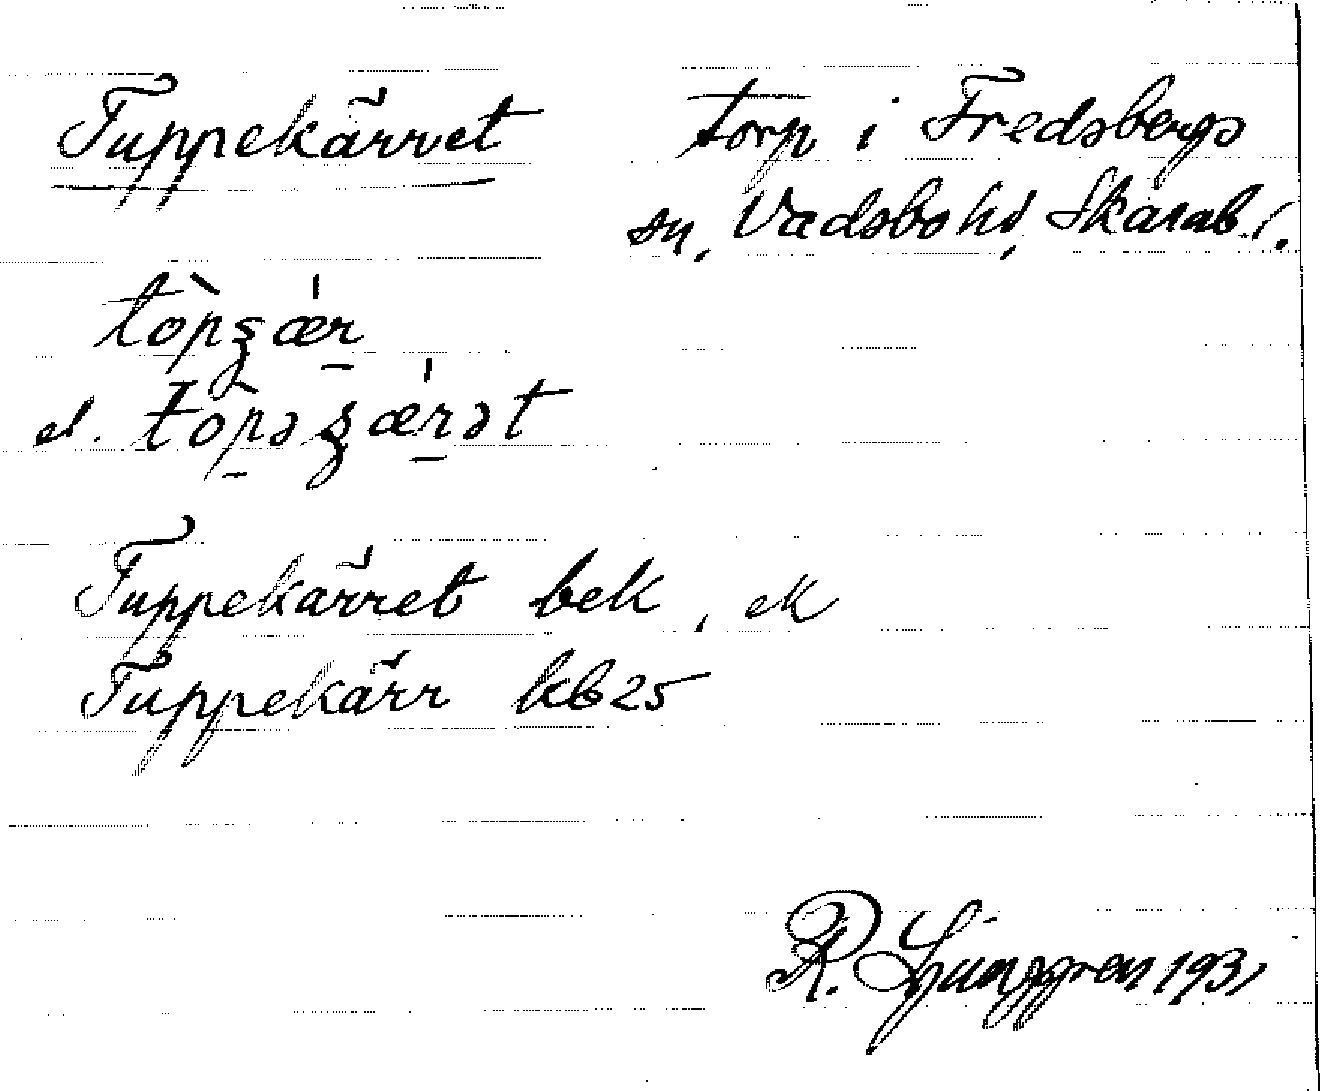 Tuppekärret torp i Fredsbergs
sn, Vadsbo hd, Skarab. l.
tòpʒǽr
el. tòpəʒǽrət
Tuppekärret bek, ek
Tuppekärr kb25
R. Ljunggren 1931